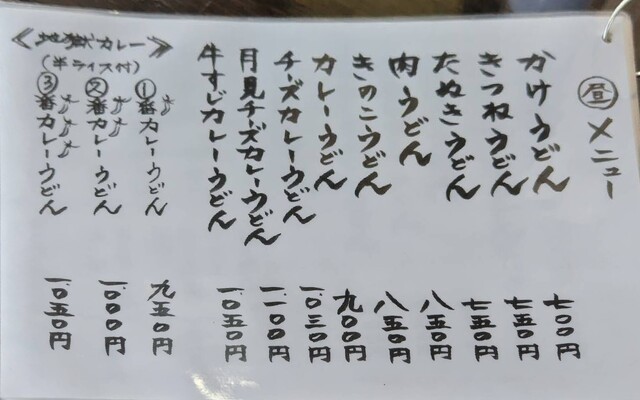 昼メニュー
かけうどん 七〇〇円
きつねうどん 七五〇円
たぬきうどん 七五〇円
肉うどん 八五〇円
きのこうどん 八五〇円
カレーうどん 九〇〇円
チーズカレーうどん 一、〇三〇円
月見チーズカレーうどん 一、一〇〇円
牛すじカレーうどん 一、〇五〇円
≪地獄カレー≫
(半ライス付)
①番カレーうどん 九五〇円
②番カレーうどん 一、〇〇〇円
③番カレーうどん 一、〇五〇円